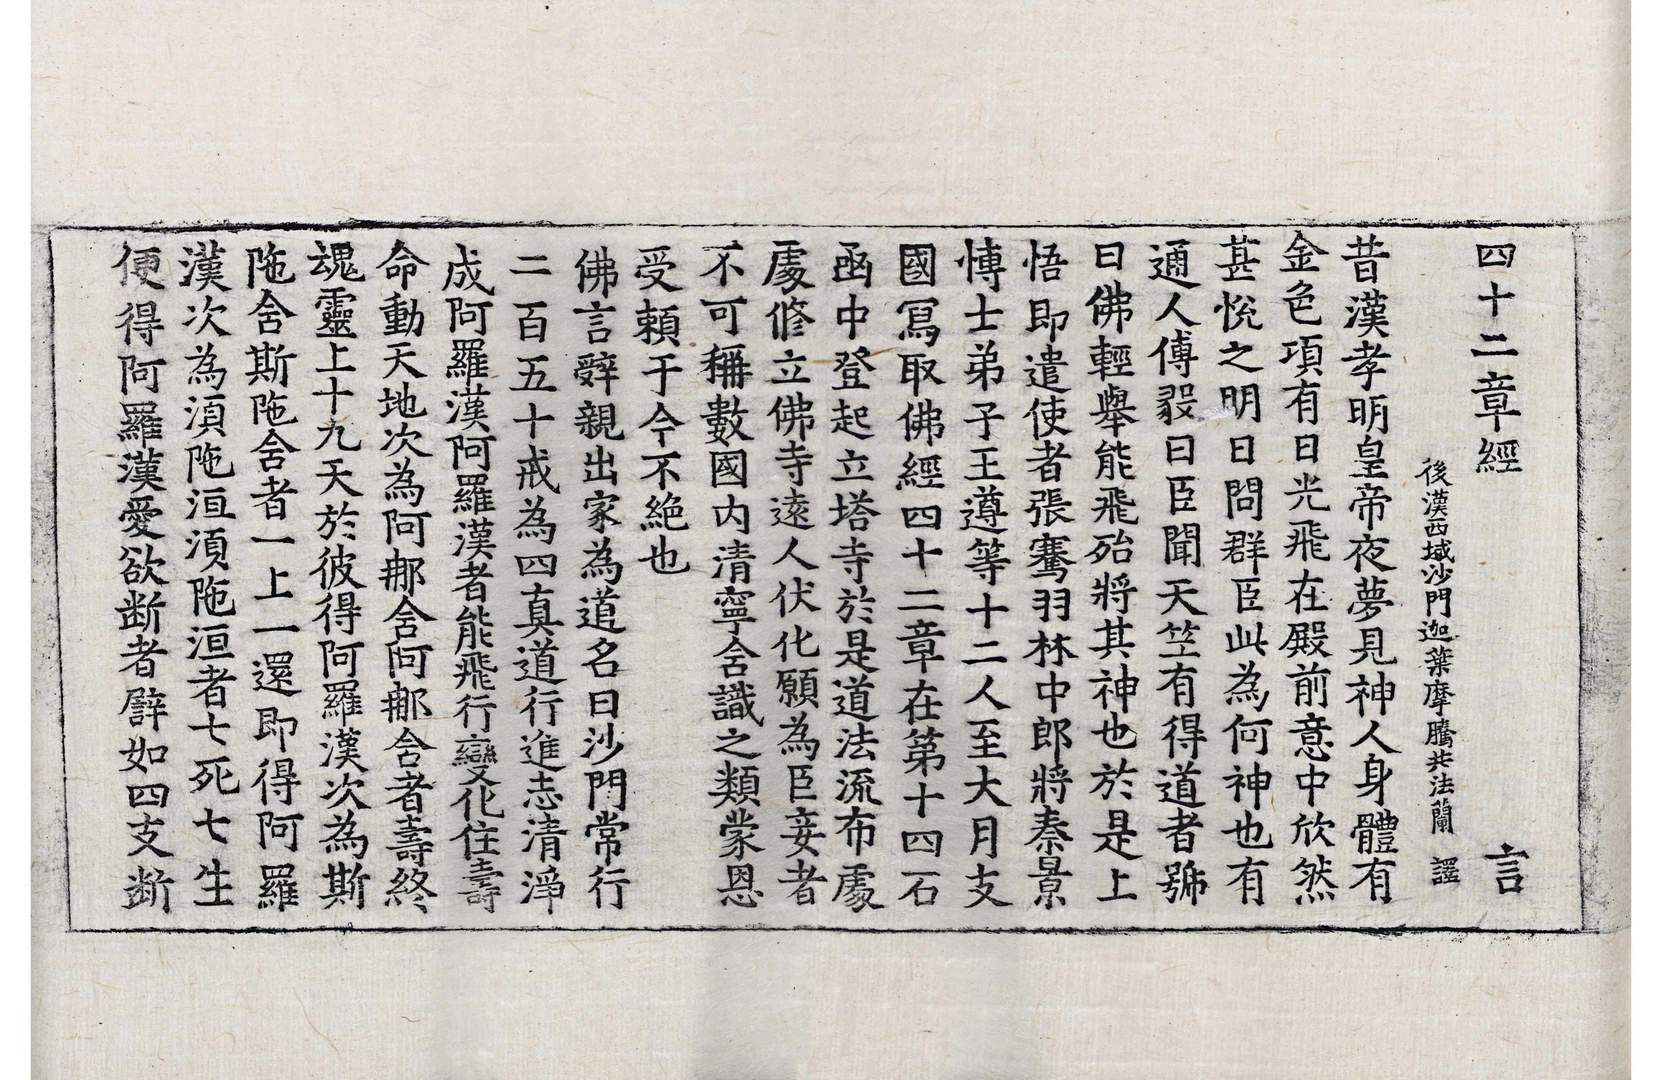 四十二章經 言
後漢西域沙門迦葉摩騰共法蘭 譯
昔漢孝明皇帝夜夢見神人身體有
金色項有日光飛在殿前意中欣然
甚悅之明日問群臣此為何神也有
通人傅毅曰臣聞天竺有得道者號
曰佛輕舉能飛殆將其神也於是上
悟即遣使者張騫羽林中郎將秦景
愽士弟子王遵等十二人至大月支
國冩取佛經四十二章在第十四石
函中登起立塔寺於是道法流布處
處修立佛寺遠人伏化願為臣妾者
不可稱數國內清寧含識之類蒙恩
受賴于今不絕也
佛言辭親出家為道名曰沙門常行
二百五十戒為四真道行進志清淨
成阿羅漢阿羅漢者能飛行變化住壽
命動天地次為阿那含阿那含者壽終
魂靈上十九天於彼得阿羅漢次為斯
陁含斯陁含者一上一還即得阿羅
漢次為湏陁洹湏陁洹者七死七生
便得阿羅漢愛欲断者譬如四支断